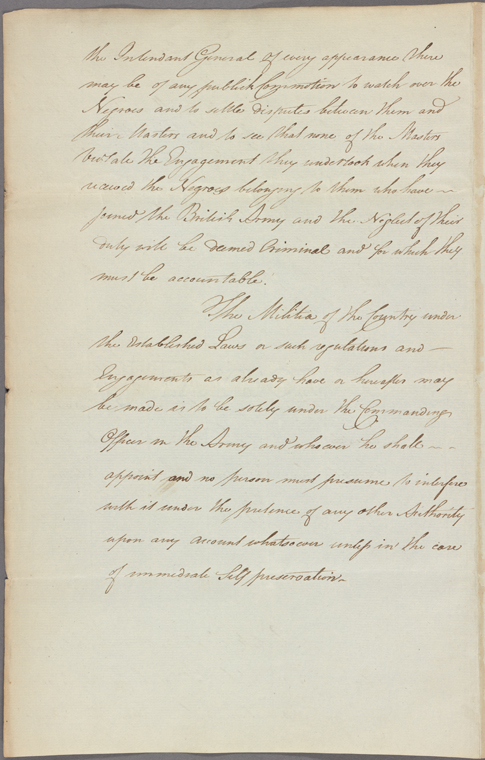 the Intendant General of every appearance there
may be of any publick Commotion to watch over the
Negroes and to settle disputes between them and
their Masters and to see that none of the Masters
violate the Engagement they undertook when they
received the Negroes belonging to them who have —
joined the British Army and the Neglect of their
duty will be deemed Criminal and for which they
must be accountable.
The Militia of the Country under
the established Laws or such regulations and —
Engagements as already have or hereafter may
be made is to be solely under the Commanding
Officer in the Army and whoever he shall — -
appoint and no person must presume to interfere
with it under the pretence of any other Authority
upon any account whatsoever unless in the case
of immediate Self preservation —